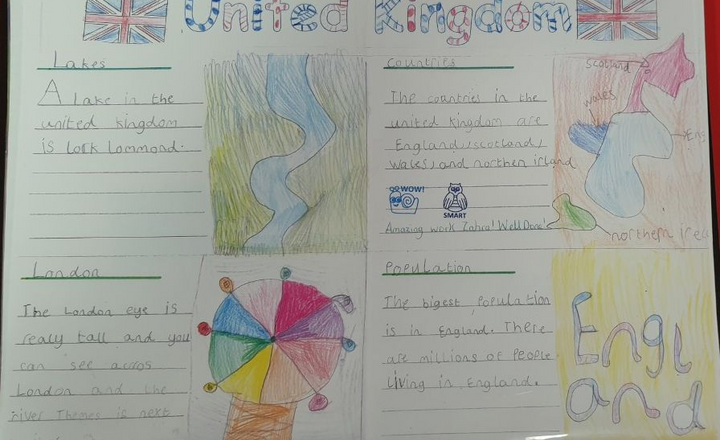 United Kingdom
Lakes
A Lake in the
united kingdom
is lork Lommond.
Countries
The countries in the
united kingdom are
England, scotland,
wales, and northen irland
WOW!
SMART
Amazing work Zahra! Well Done!
Scotland
wales
Eng
northern Irel
London
The London eye is
realy tall and you
can see acros
London and the
river Themes is next
Population
The bigest Population
is in England. There
are millions of People
Living in England.
Engl
and